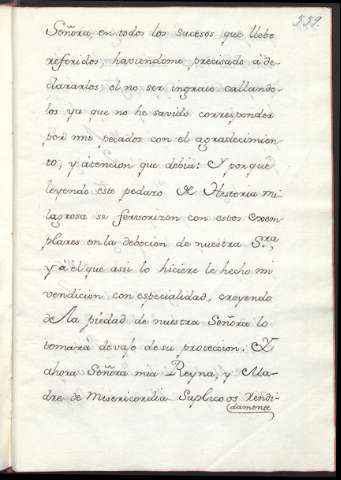 559.
Señora, en todos los sucesos que llebo
referidos, haviendome precisado à de-
clararlos, el no ser ingrato callando-
los ya que no he savido corresponder
por mis pecados con el agradecimien-
to, y atencion que debia: Y porque
leyendo este pedazo de Historia mi-
lagrosa se fervorizen con estos exem-
plares en la debocion de nuestra Sra,
y à el que asi lo hiciere le hecho mi
vendicion con especialidad, creyendo
de la piedad de nuestra Señora lo
tomarà devajo de su proteccion: Y
ahora Señora mia Reyna, y Ma-
dre de Misericordia Suplico os Rendi-
damente